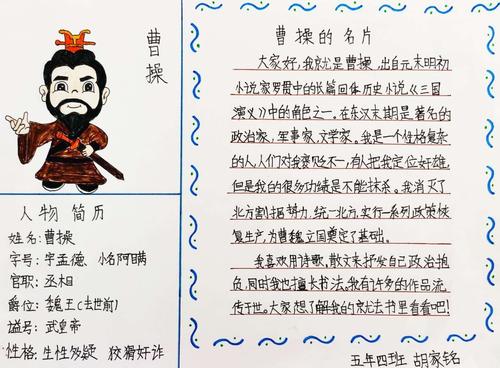 曹操
人物 简历
姓名:曹操
字号:字孟德、小名阿瞒
官职:丞相
爵位:魏王(去世前)
谥号:武皇帝
性格:生性多疑 狡猾奸诈
曹操的名片
大家好,我就是曹操,出自元末明初
小说家罗贯中的长篇回体历史小说《三国
演义》中的角色之一。在东汉末期是著名的
政治家,军事家,文学家。我是一个性格复杂
的人,人们对我褒贬不一,有人把我定位奸雄,
但是我的很多功绩是不能抹杀。我消灭了
北方割据势力,统一北方,实行一系列政策恢
复生产,为曹魏立国奠定了基础。
我喜欢用诗歌,散文来抒发自己政治抱
负,同时我也擅长书法,我有许多的作品流
传于世。大家想了解我的就去书里看看吧!
五年四班 胡家铭